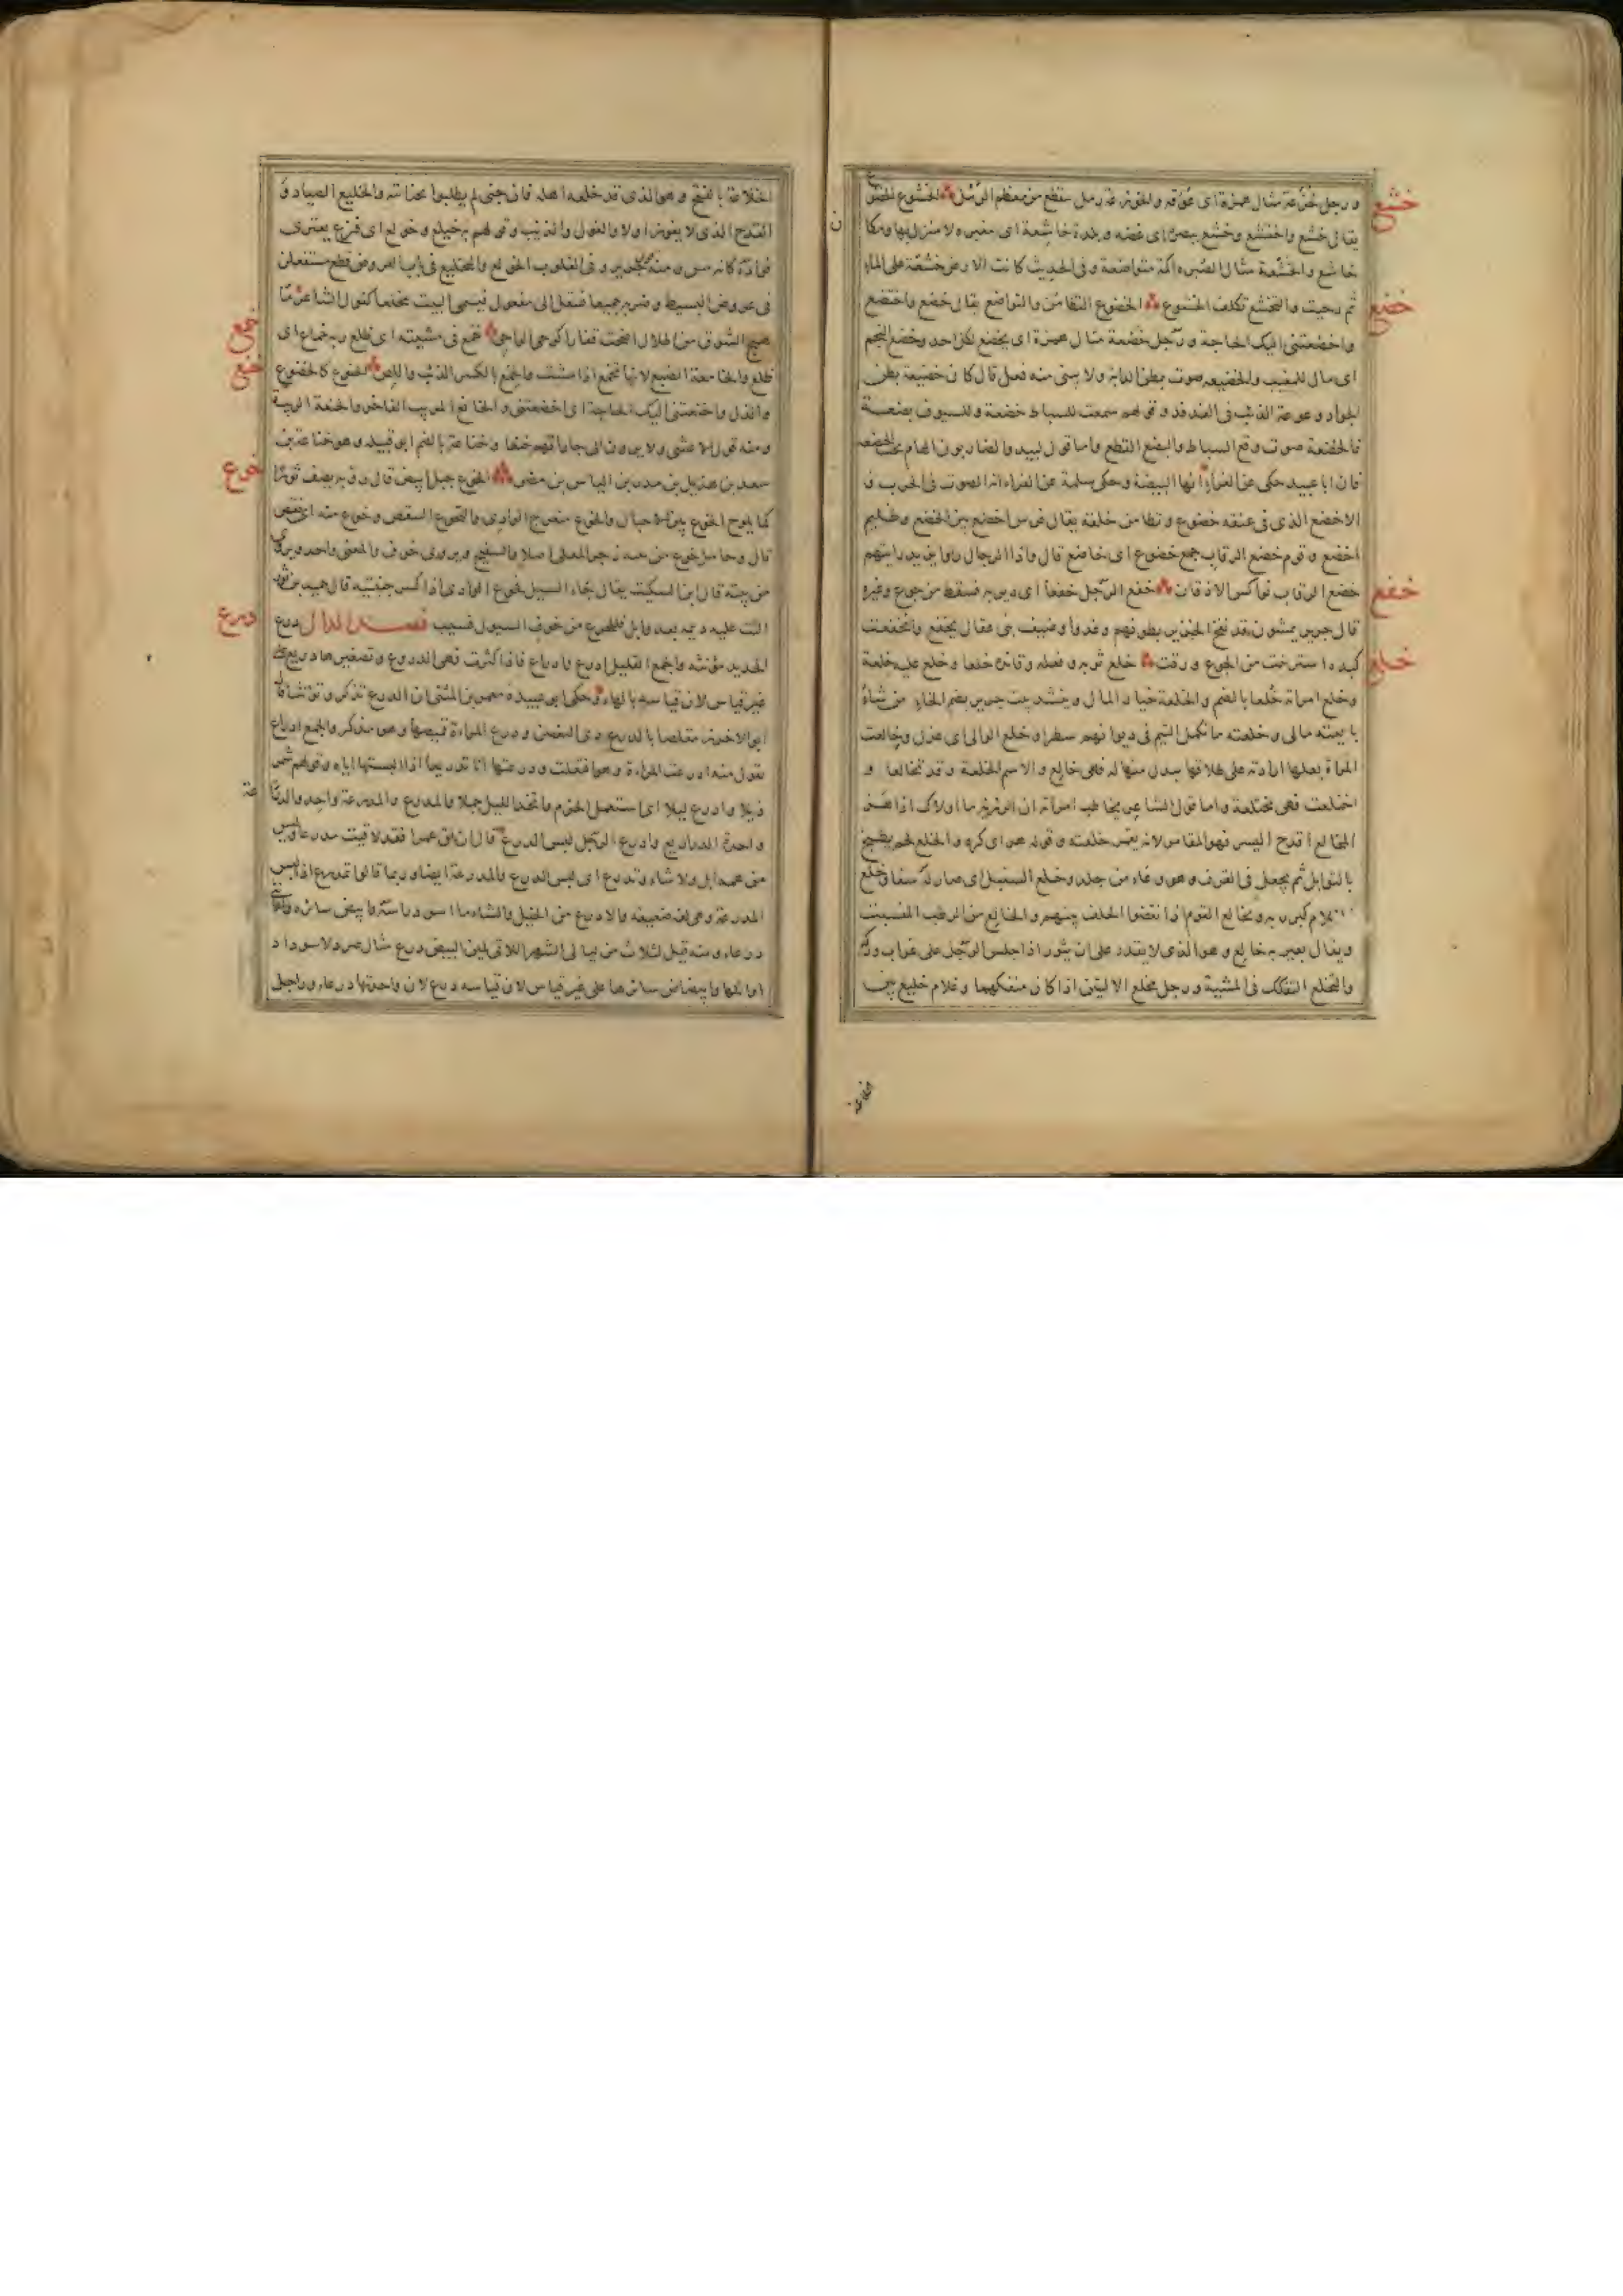 خشع
ورجل خزعة مثال همزة اى عوقه والخوزعة رمل ينقطع من معظم الرمل الخشوع الخضوع
يقال خشع واختشع وخشع ببصره اى غضه وبلدة خاشعة اى مغبره لا منزل بها ومكان
خاشع والخشعة مثال الصبره اكمة متواضعة وفى الحديث كانت الارض خشعة على الماء
خضع
ثم دحيت والتخشع تكلف الخشوع الخضوع التطامن والتواضع يقال خضع واختضع
واخضعتنى اليك الحاجة ورجل خضعة مثال همزة اى يخضع لكل احد وخضع النجم
اى مال للمغيب والخضيعه صوت بطن الدابة ولا يبنى منه فعل قال كان خضيعة بطن
الجواد وعوعة الذئب فى الفدفد وقولهم سمعت للسياط خضعة وللسيوف بضعة
فالخضعة صوت وقع السياط والبضع القطع واما قول لبيد والضاربون الهام تحت الخضعه
فان ابا عبيد حكى عن الفراء انها البيضة وحكى سلمة عن الفراء انه الصوت فى الحرب و
الاخضع الذى فى عنقه خضوع وتطامن خلقه يقال فرس اخضع بين الخضع وظليم
اخضع وقوم خضع الرقاب جمع خضوع اى خاضع قال واذا الرجال راوا يزيد رايتهم
خفع
خضع الرقاب نواكس الاذقان خفع الرجل خفعا اى دير به فسقط من جوع وغيره
قال جرير يمشون قد نفخ الخزير بطونهم وغدوا وضيف بنى عقال يخفع وانخفعت
خلع
كبده استرخت من الجوع ورقت خلع ثوبه ونعله وقائده خلعا وخلع عليه خلعة
وخلع امراته خلعا بالضم والخلعة خيار المال وينشد بيت جرير بضم الخاء من شاء
بايعته مالى وخلعته ما تكمل التيم فى ديوانهم سطرا وخلع الوالى اى عزل وخالعت
المراة بعلها ارادته على طلاقها ببدل منها له فهى خالع والاسم الخلعة وقد تخالعا و
اختلعت فهى مختلعة واما قول الشاعر يخاطب امراته ان الرزية ما اولاك اذا هز
المخالع اقدح اليسر فهو المقامر لانه يقمر خلعته وقوله هز اى كره والخلع لحم يطبخ
بالتوابل ثم يجعل فى القرف وهو وعاء من جلد وخلع السنبل اى صار له سفا وخلع
الغلام كبر زبه وتخالع القوم اذا نقضوا الحلف بينهم والخالع من الرطب المنسبت
ويقال بعير به خالع وهو الذى لا يقدر على ان يثور اذا جلس الرجل على غراب وركه
والتخلع التفكك فى المشية ورجل مخلع الاليتين اذا كان منفكهما وغلام خليع بين
الخلاعة
الخلاعة بالفتح وهو الذى قد خلعه اهله فان جنى لم يطلبوا بجنايته والخليع الصياد و
القدح الذى لا يفوز اولا والغول والذيب وقولهم به خيلع وخولع اى فزع يعترى
فؤاده كانه مس ومنه قول جرير وفى القلوب الخولع والتخليع فى باب العروض قطع مستفعلن
فى عروض البسيط وضربه جميعا فينقل الى مفعول فيسمى البيت مخلعا كقول الشاعر ما
خمع
هيج الشوق من اطلال اضحت قفارا كوحى الواحى خمع فى مشيته اى ظلع وبه خماع اى
خنع
ظلع والخامعة الضبع لانها تخمع اذا مشت والخمع بالكسر الذئب واللص الخنوع كالخضوع
والذل واخنعتنى اليك الحاجة اى اخضعتنى والخانع المريب الفاجر والخنعة الريبة
ومنه قول الاعشى ولا يرون الى جاراتهم خنعا وخناعة بالضم ابو قبيله وهو خناعة بن
خوع
سعد بن هذيل بن مدركة بن الياس بن مضر الخوع جبل ابيض قال رؤبة يصف ثورا
كما يلوح الخوع بين الاجبال والخوع منعرج الوادى والتخوع التنقص وخوع منه اى نقص
قال وجامل خوع من نيبه زجر المعلى اصلا والسفيح ويروى خوف والمعنى واحد ويروى
من نيبه قال ابن السكيت يقال جاء السيل فخوع الوادى اذا كسر جنبتيه قال حميد بن ثور
درع
الثت عليه ديمة بعد وابل فللجزع من خوع السيول قسيب فصل الدال درع
الحديد مؤنثه والجمع القليل ادرع وادراع فاذا كثرت فهى الدروع وتصغيرها دريع على
غير قياس لان قياسه بالهاء وحكى ابو عبيدة معمر بن المثنى ان الدرع تذكر وتؤنث قال
ابو الاخزر مقلصا بالدرع ذى التغضن ودرع المراة قميصها وهو مذكر والجمع ادراع
تقول منه ادرعت المراة وهو افتعلت ودرعتها انا تدريعا اذا البستها اياه وقولهم شمر
ذيلا وادرع ليلا اى استعمل الحزم واتخذ الليل جملا والمدرع والمدرعة واحد والدراعة
واحدة الدراريع وادرع الرجل لبس الدرع قال ان تلق عمرا فقد لاقيت مدرعا وليس
من همه ابل ولا شاء وتدرع اى لبس الدرع والمدرعة ايضا وربما قالوا تمدرع اذا لبس
المدرعة وهى لغة ضعيفه والادرع من الخيل والشاء ما اسود راسه وابيض سائره والانثى
درعاء ومنه قيل لثلاث من ليالى الشهر اللاتى يلين البيض درع مثال صرد لاسوداد
اوائلها وابيضاض سائرها على غير قياس لان قياسه درع لان واحدتها درعاء ورجل